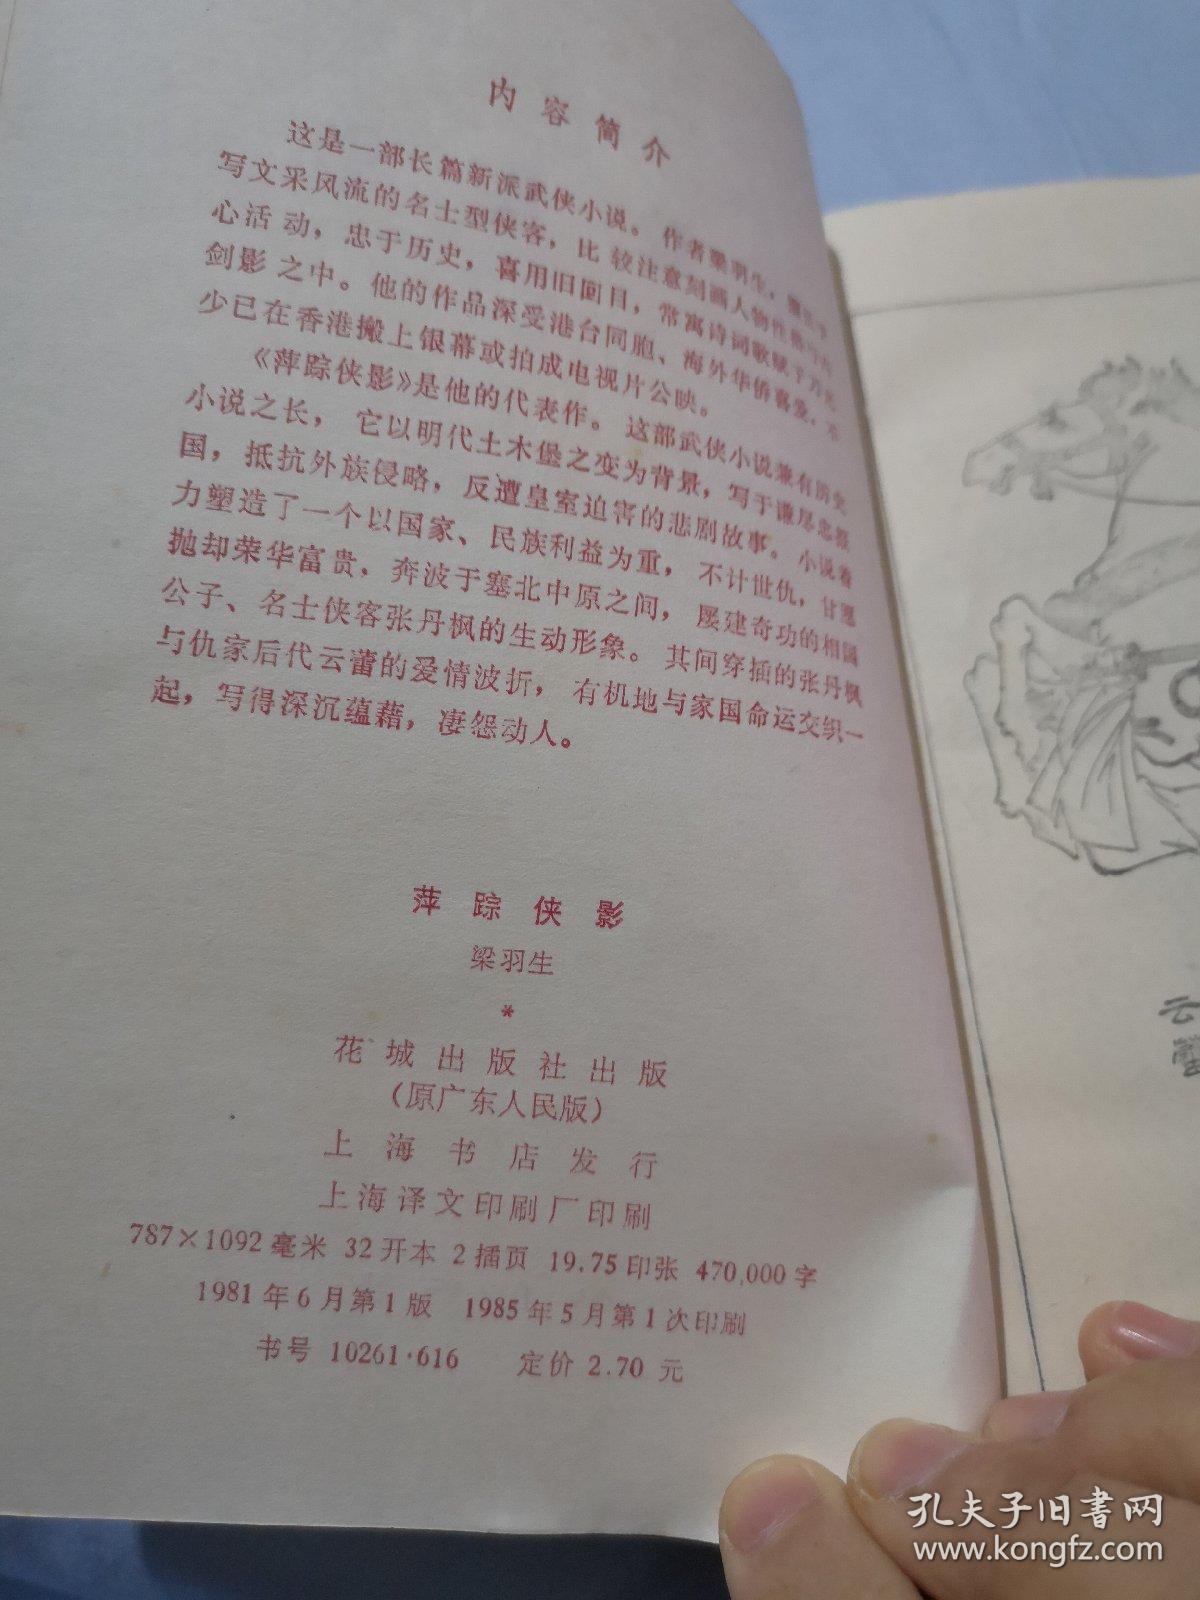 内容简介
这是一部长篇新派武侠小说。作者梁羽生，擅长
写文采风流的名士型侠客，比较注意刻画人物性格与内
心活动，忠于历史，喜用旧回目，常寓诗词歌赋于刀光
剑影之中。他的作品深受港台同胞、海外华侨喜爱，不
少已在香港搬上银幕或拍成电视片公映。
《萍踪侠影》是他的代表作。这部武侠小说兼有历史
小说之长，它以明代土木堡之变为背景，写于谦尽忠报
国，抵抗外族侵略，反遭皇室迫害的悲剧故事。小说着
力塑造了一个以国家、民族利益为重，不计世仇，甘愿
抛却荣华富贵，奔波于塞北中原之间，屡建奇功的相国
公子、名士侠客张丹枫的生动形象。其间穿插的张丹枫
与仇家后代云蕾的爱情波折，有机地与家国命运交织一
起，写得深沉蕴藉，凄怨动人。
萍踪侠影
梁羽生
*
花城出版社出版
（原广东人民版）
上海书店发行
上海译文印刷厂印刷
787×1092毫米 32开本 2插页 19.75印张 470,000字
1981年6月第1版 1985年5月第1次印刷
书号 10261·616 定价 2.70 元
云
孔夫子旧書网
www.kongfz.com